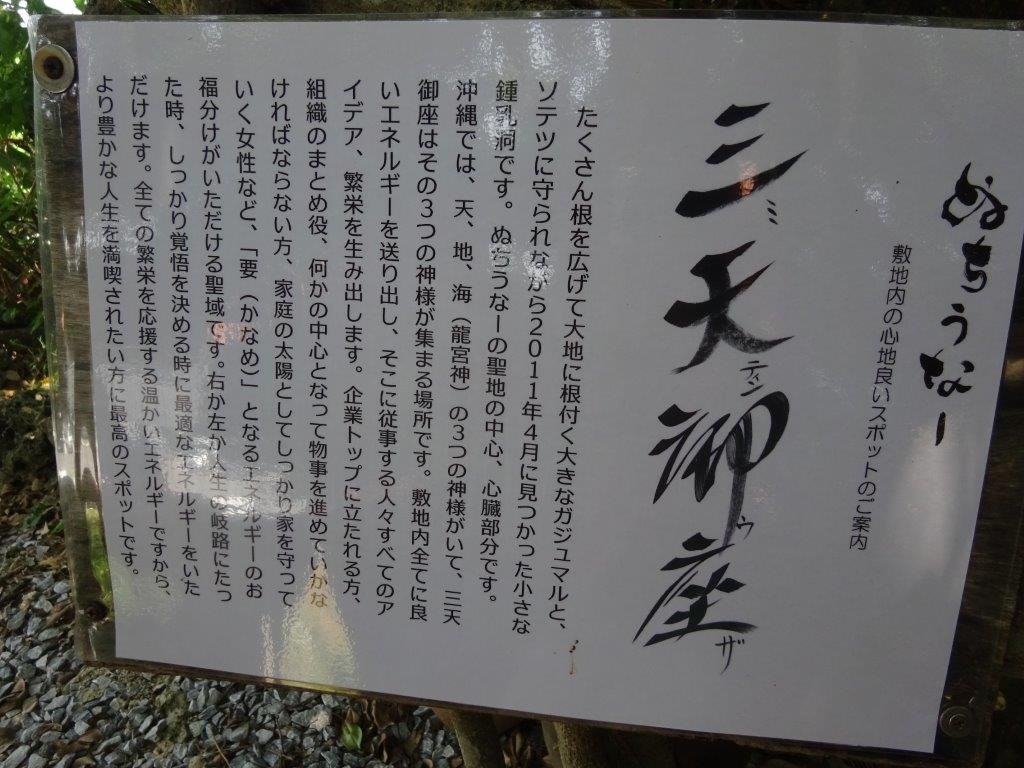 ぬちうなー
敷地内の心地良いスポットのご案内
三天御座
ミ
ティン
ウ
ザ
たくさん根を広げて大地に根付く大きなガジュマルと、
ソテツに守られながら2011年4月に見つかった小さな
鍾乳洞です。ぬちうなーの聖地の中心、心臓部分です。
沖縄では、天、地、海（龍宮神）の3つの神様がいて、三天
御座はその3つの神様が集まる場所です。敷地内全てに良
いエネルギーを送り出し、そこに従事する人々すべてのア
イデア、繁栄を生み出します。企業トップに立たれる方、
組織のまとめ役、何かの中心となって物事を進めていかな
ければならない方、家庭の太陽としてしっかり家を守って
いく女性など、「要（かなめ）」となるエネルギーのお
福分けがいただける聖域です。右か左か人生の岐路にたっ
た時、しっかり覚悟を決める時に最適なエネルギーをいた
だけます。全ての繁栄を応援する温かいエネルギーですから、
より豊かな人生を満喫されたい方に最高のスポットです。